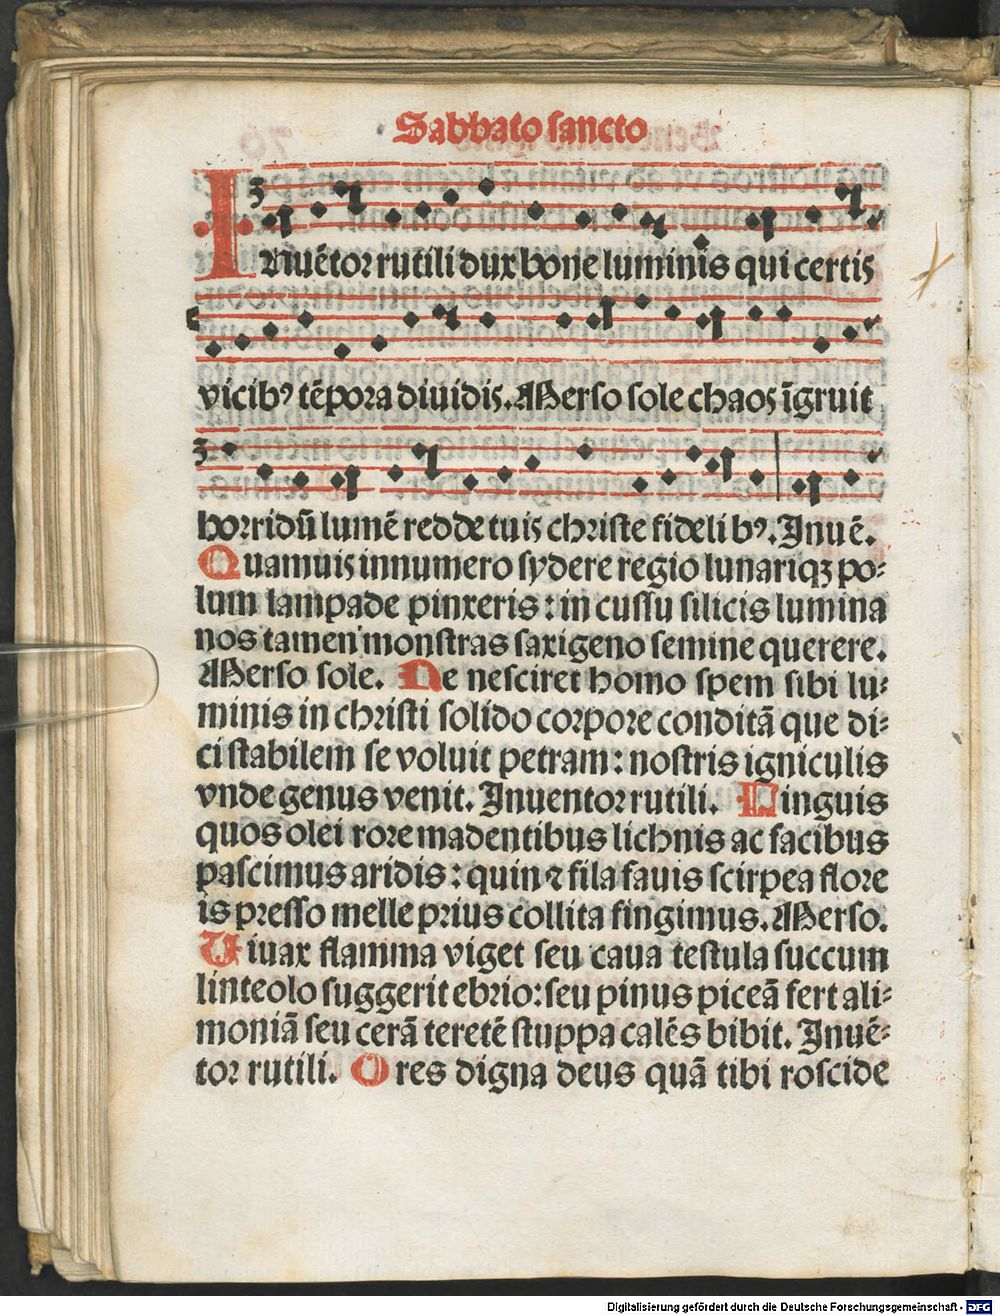 Sabbato sancto
INuẽtor rutili dux bone luminis qui certis
vicibꝰ tẽpora diuidis. Merso sole chaos ĩgruit
horridũ lumẽ redde tuis christe fidelibꝰ. Inuẽ.
Quamuis innumero sydere regio lunariqꝫ po⸗
lum lampade pinxeris: in cussu silicis lumina
nos tamen monstras saxigeno semine querere.
Merso sole. Ne nesciret homo spem sibi lu⸗
minis in christi solido corpore conditã que di⸗
ci stabilem se voluit petram: nostris igniculis
vnde genus venit. Inuentor rutili. Linguis
quos olei rore madentibus lichnis ac facibus
pascimus aridis: quin ⁊ fila fauis scirpea flore
is presso melle prius collita fingimus. Merso.
Uiuax flamina viget seu caua testula succum
linteolo suggerit ebrio: seu pinus piceã fert ali⸗
moniã seu cerã teretẽ stuppa calẽs bibit. Inuẽ⸗
tor rutili. Ores digna deus quã tibi roscide
Digitalisierung gefördert durch die Deutsche Forschungsgemeinschaft - DFG